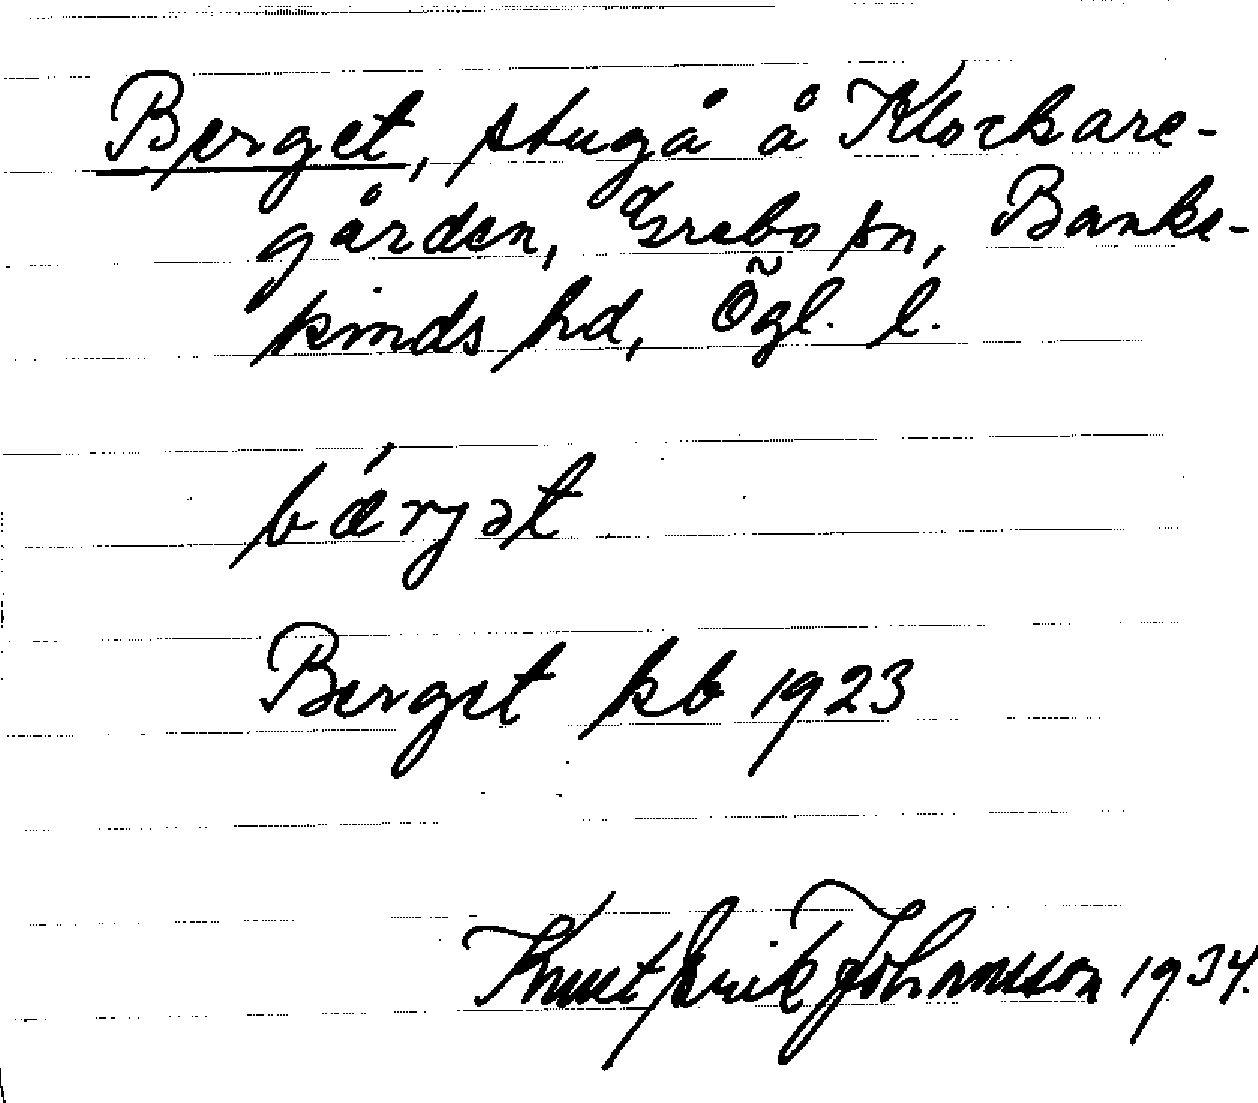 Berget, stuga å Klockare-
gården, Grebo sn, Banke-
kinds hd, Ögl. l.
bǽrjət
Berget kb 1923
Knut Erik Johansson 1934.